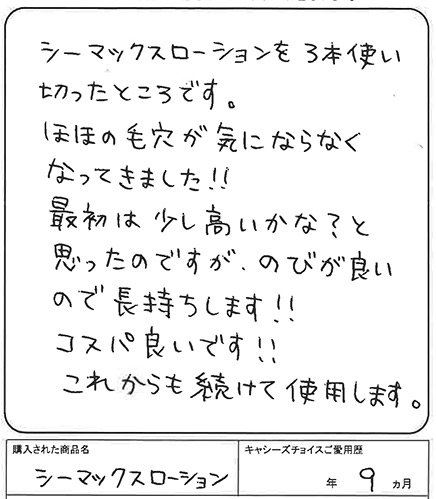 シーマックスローションを3本使い
切ったところです。
ほほの毛穴が気にならなく
なってきました!!
最初は少し高いかな?と
思ったのですが、のびが良い
ので長持ちします!!
コスパ良いです!!
これからも続けて使用します。
購入された商品名
シーマックスローション
キャシーズチョイスご愛用歴
年 9 ヵ月